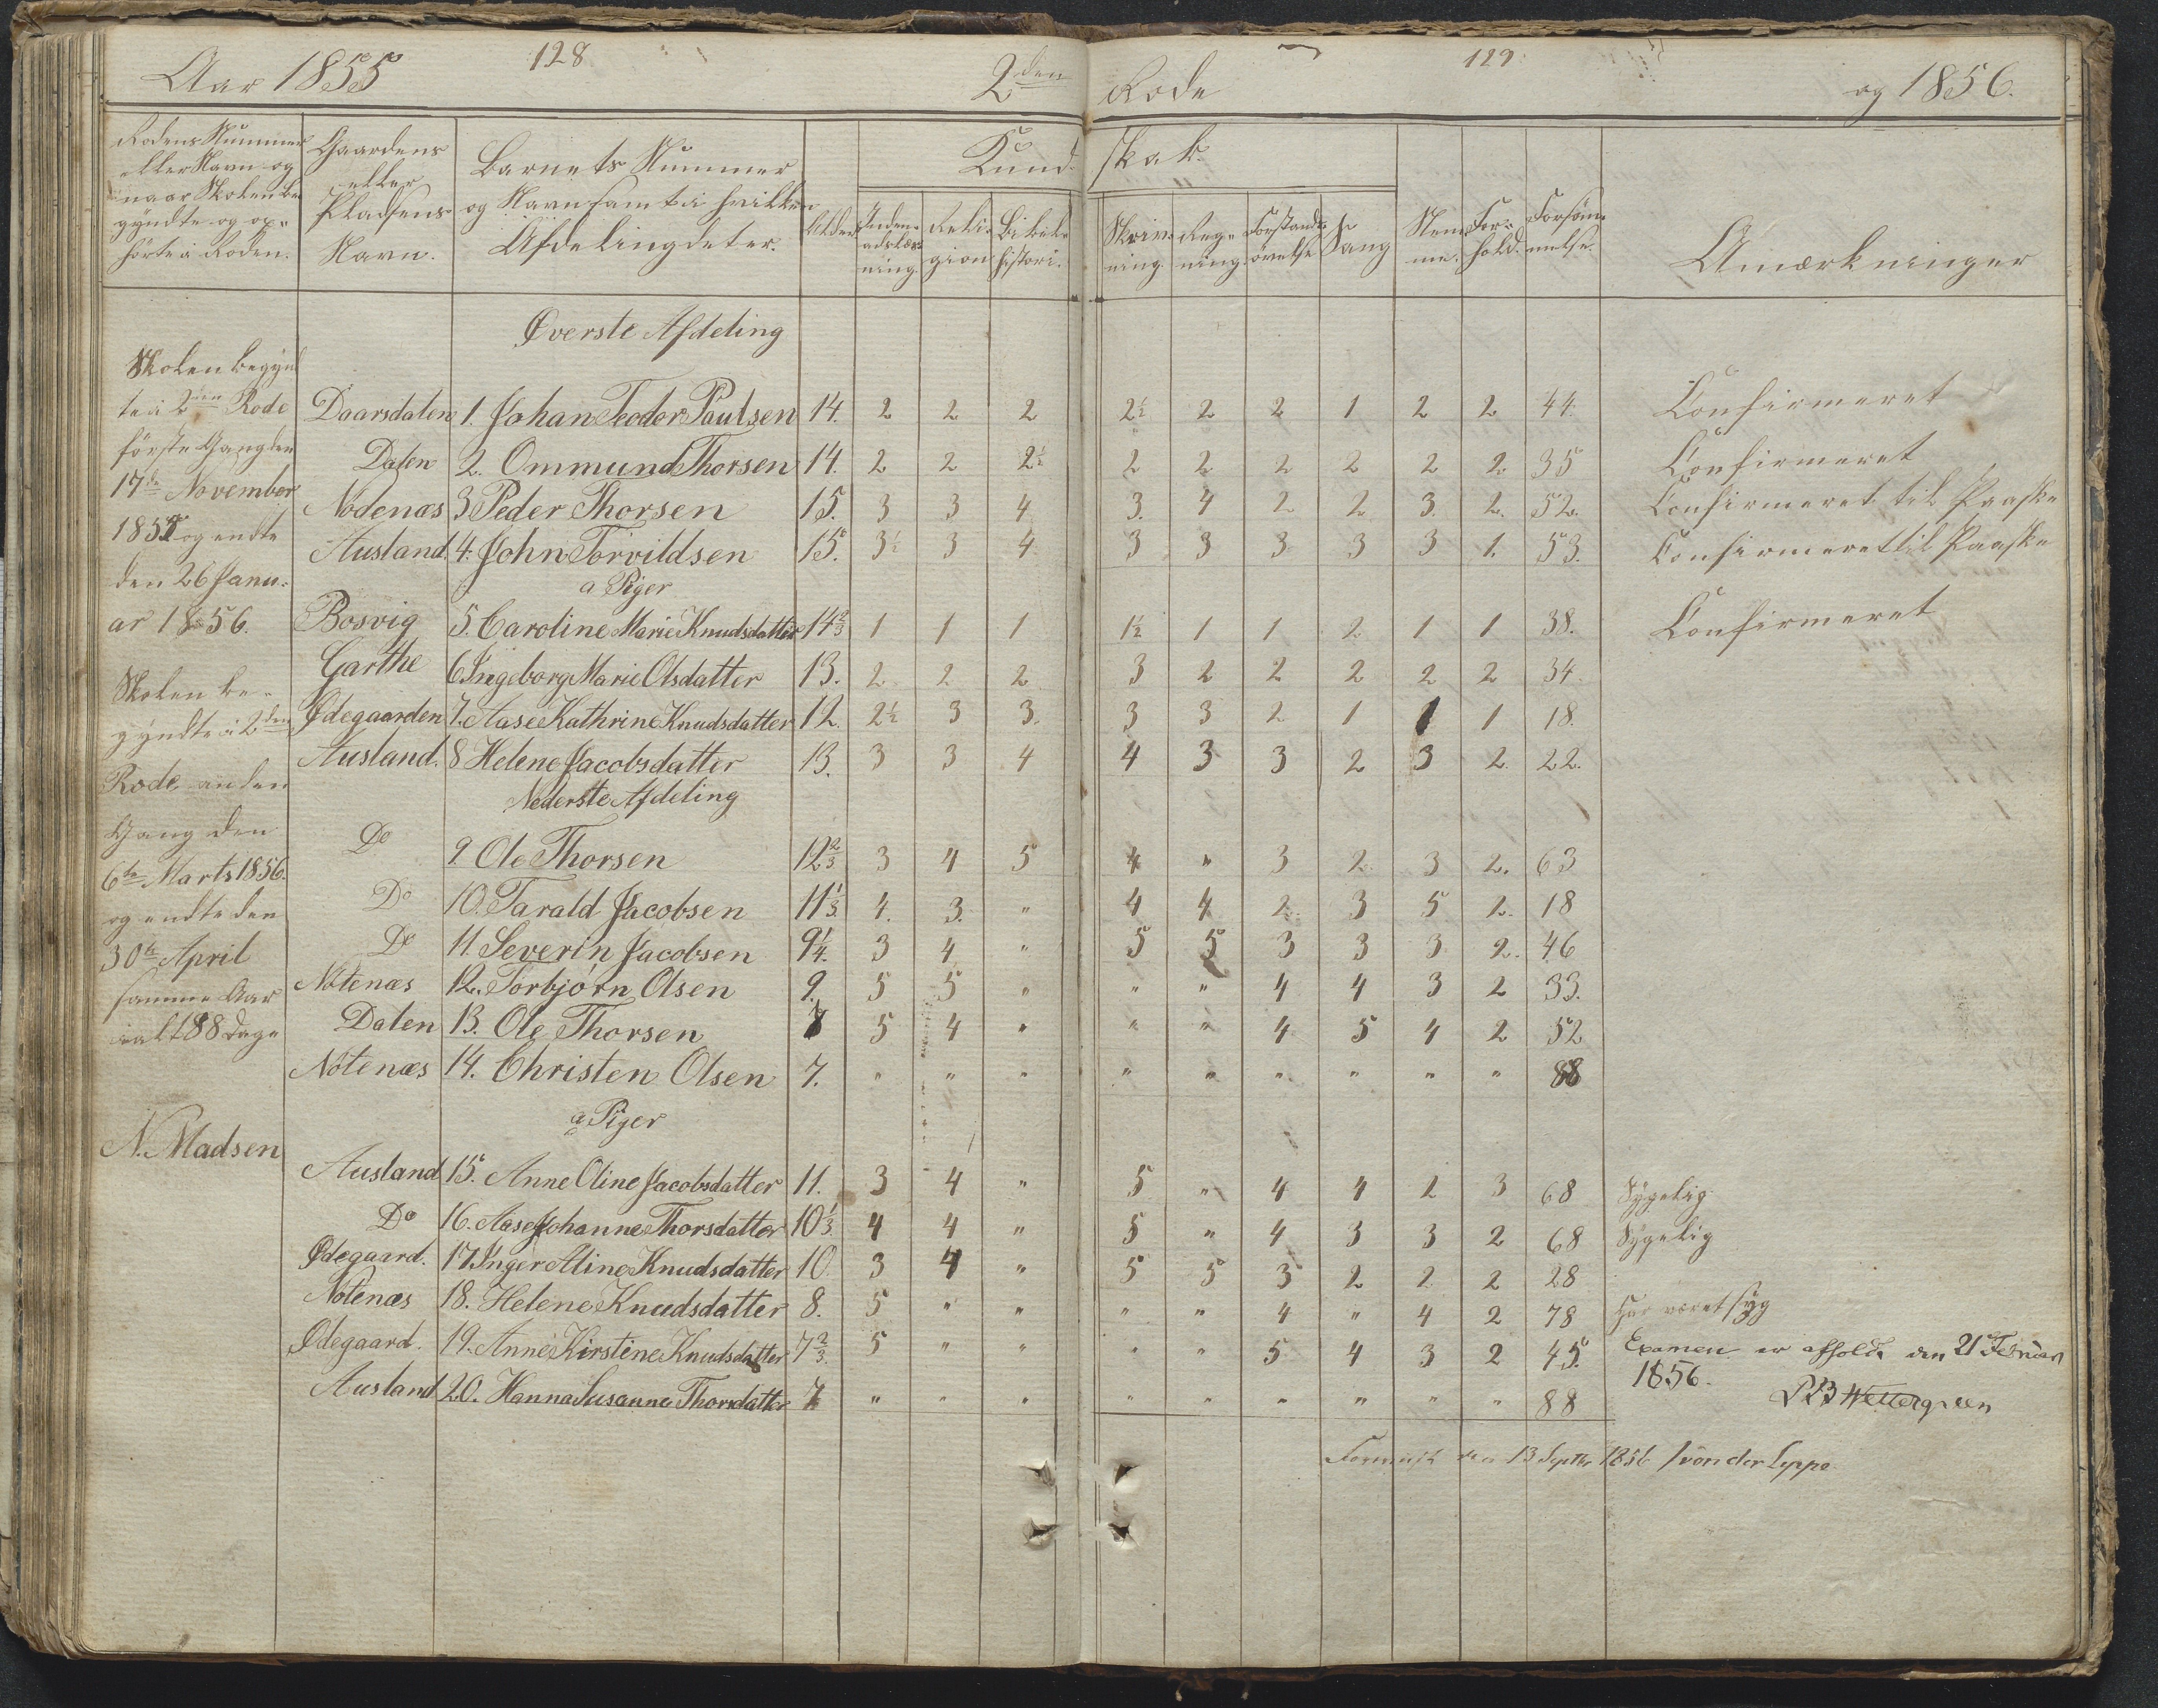 128
129
Aar 1855
2den Rode
og 1856.
Rodens Nummer
eller Navn og
naar Skolen be-
gyndte og op-
hörte i Roden.
Gaardens
eller
Pladsens
Navn.
Barnets Nummer
og Navn samt i hvilken
Afdeling det er.
Alder
Kundskab.
Inden-
adslæs-
ning.
Reli-
gion
Bibel-
histori.
Skriv-
ning.
Reg-
ning.
Forstands-
övelse
Sang
Nem-
me.
For-
hold.
Forsöm-
melse.
Anmærkninger
Øverste Afdeling
Daarsdalen 1. Johan Teodor Paulsen 14. 2 2 2 2½ 2 2 1 2 2 44. Confirmeret
Dalen 2. Ommund Thorsen 14. 2 2 2½ 2 2 2 2 2 2. 35 Confirmeret
Nödenæs 3 Peder Thorsen 15. 3 3 4 3. 4 2 2 3 2. 52. Confirmeret til Paaske
Ausland. 4. John Torvildsen 15. 3½ 3 4 3 3 3 3 3 1. 53. Confirmeret til Paaske
a Piger
Bosvig 5. Caroline Marie Knudsdatter 14⅔ 1 1 1 1½ 1 1 2 1 1 38. Confirmeret
Garthe 6 Ingeborg Marie Olsdatter 13. 2 2 2 3 2 2 2 2 2 34.
Ødegaarden 7. Aase Kathrine Knudsdatter 12. 2½ 3 3. 3 3 2 1 1 1 18.
Ausland. 8 Helene Jacobsdatter 13. 3 3 4 4 3 3 2 3 2. 22.
Nederste Afdeling
Do 9. Ole Thorsen 12⅔ 3 4 5 4 " 3 2. 3 2. 63
Do 10. Tarald Jacobsen 11⅓ 4. 3. " 4 4 2. 3 5 2. 18
Do 11. Severin Jacobsen 9¼. 3 4 " 5 5 3 3 3 2. 46
Nötenæs 12. Torbjörn Olsen 9. 5 5 " " " 4 4 3 2 33.
Dalen 13. Ole Thorsen 7 5 4 " " " 4 5 4 2 52
Nötenæs 14. Christen Olsen 7. " " " " " " " " " 88
a Piger
Ausland 15. Anne Oline Jacobsdatter 11. 3 4 " 5 " 4 4 2 3 68 Sygelig
Do 16. Aase Johanne Thorsdatter 10⅓. 4 4 " 5 " 4 3 3 2 68 Sygelig
Ødegaard. 17. Inger Aline Knudsdatter 10. 3 4 " 5 5 3 2 2 2 28
Nötenæs 18. Helene Knudsdatter 8. 5 " " " " 4 " 4 2 78 Har været syg
Ødegaard. 19. Anne Kirstine Knudsdatter 7⅔. 5 " " " " 5 4 3 2 45.
Ausland 20. Hanna Susanna Thorsdatter 7 " " " " " " " " " 88
Skolen begynd
te i 2den Rode
förste Gang den
17de November
1855 og endte
den 26 Janu-
ar 1856.
Skolen be-
gyndte i 2den
Rode anden
Gang den
6te Marts 1856.
og endte den
30te April
samme Aar
ialt 88 Dage
N. Madsen
Examen er afholdt den 21 Februar
1856.
PB Wettergreen
den 13 Septbr 1856 J von der Lippe